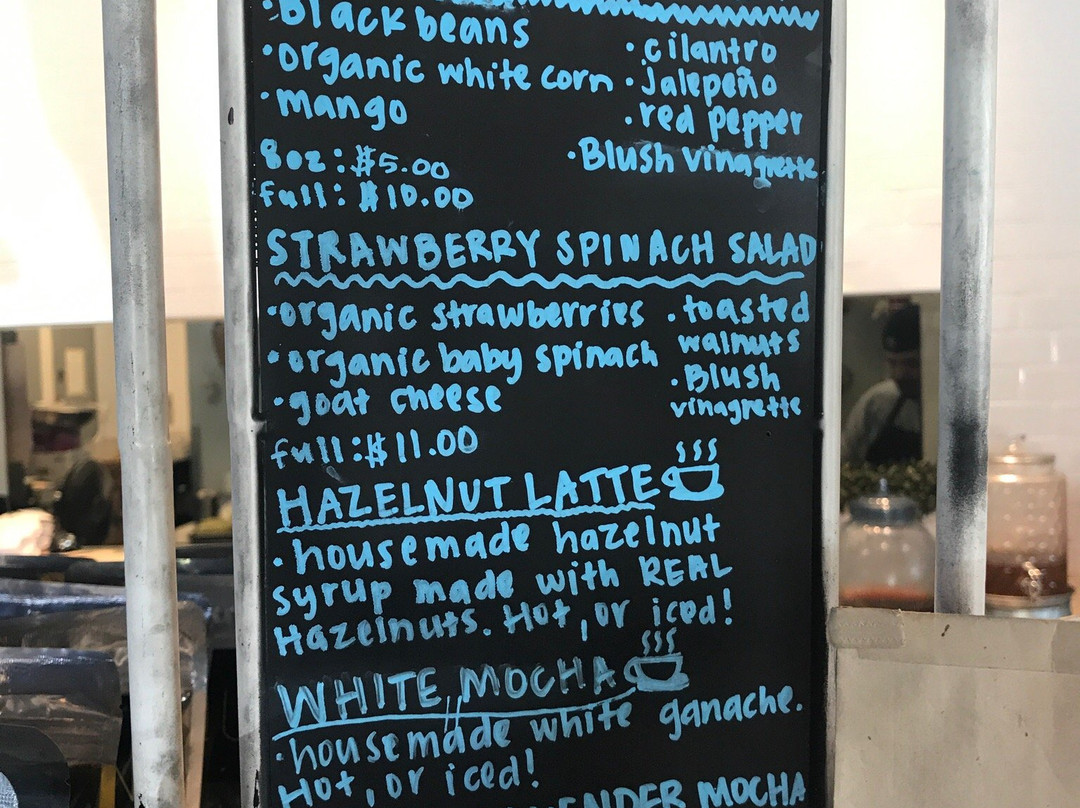 •Black beans
•organic white corn
•mango
•cilantro
•jalepeño
•red pepper
•Blush vinagrette
8oz: $5.00
full: $10.00
STRAWBERRY SPINACH SALAD
•organic strawberries
•organic baby spinach
•goat cheese
•toasted
walnuts
•Blush
vinagrette
full: $11.00
HAZELNUT LATTE
•housemade hazelnut
syrup made with REAL
Hazelnuts. Hot, or iced!
WHITE MOCHA
•housemade white ganache.
Hot, or iced!
MOCHA